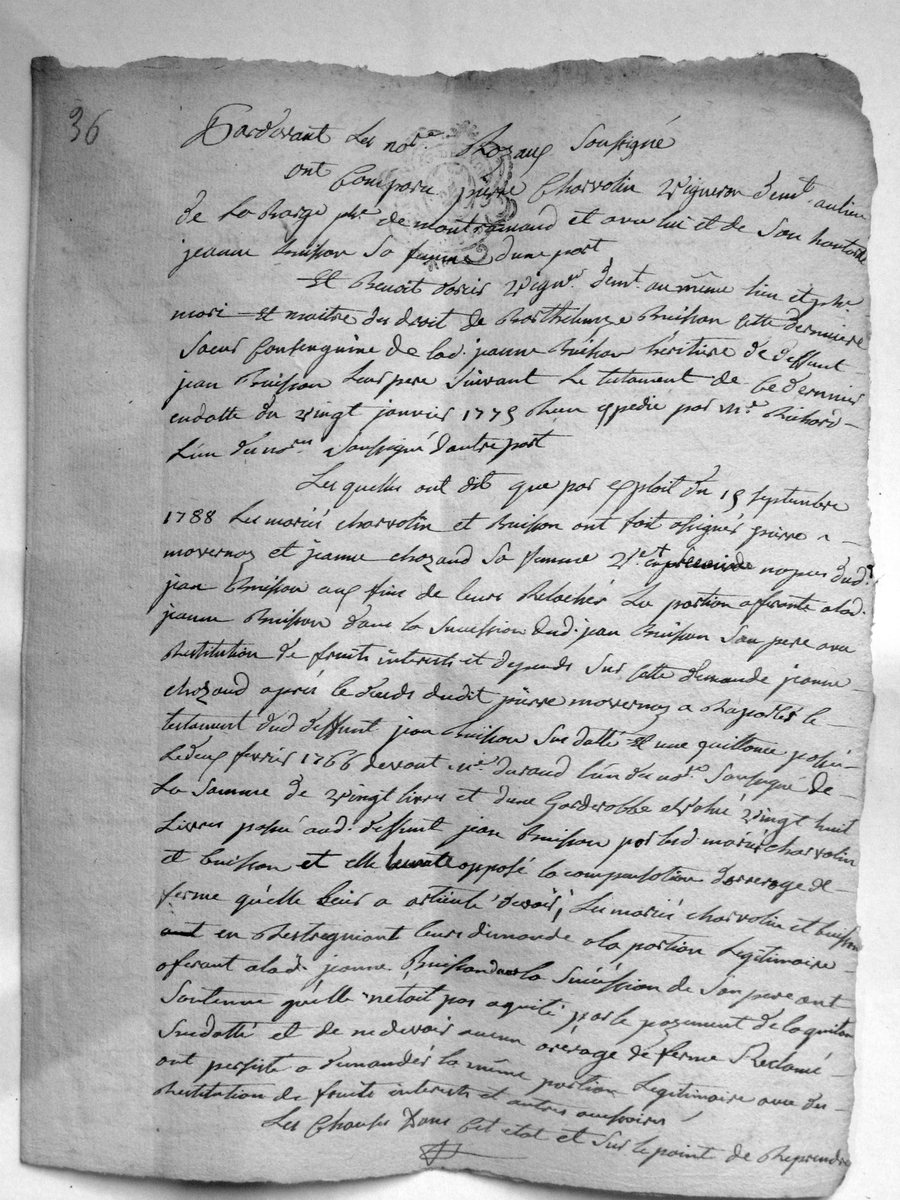 36
Pardevant Les not.re Royaux Soussigné
ont Comparu pierre Charvolin Vigneron demt. au lieu
de La Barge psse de montromand et avec lui et de Son hautorité
jeanne Buisson Sa femme d'une part
Et Benoit Vign. demt. au même lieu et psse
mari Et maitre des droit de Barthelmye Buisson Cette derniere
Soeur Consenguine de lad. jeanne Buisson héritiere de deffunt
jean Buisson Leur pere Suivant Le testament de Ce dernier
en datte du vingt janvier 1775 Reçu expedié par M.e Richard
L'un des nores Soussigné d'autre part
Les quelles ont dit que par exploit du 15 Septembre
1788 Les mariés charvolin et Buisson ont fait assigner pierre
movernay et jeanne chozand Sa femme et nopces dud.
jean Buisson aux fins de leurs Relacher La portion afferante a lad.
jeanne Buisson dans la Succession dud. jean Buisson Son pere avec
Restitution de fruits interests et depends Sur Cette demande jeanne
chozand après le deceds dudit pierre movernay a Raporté le
testament dud deffunt jean Buisson Sus datté Et une quittance passé
Le deux fevrier 1766 devant Me. durand l'un des nore. Soussigné de
La Somme de vingt livres et d'une Garderobbe evalué vingt huit
Livres passé aud. deffunt jean Buisson par lesd. mariés charvolin
et buisson et elle opposé la compensation d'arrerage de
ferme qu'elle Leur a articulé devoir; Les mariés charvolin et buisson
en Restregniant leurs demande a la portion Legitimaire
aferant a lad. jeanne Buisson dans la Succession de Son pere ont
Soutenue qu'elle n'etait pas aquité par le payement de la quitance
Susdatté et de ne devoir aucun arerage de ferme Reclamé
ont persisté a demander la même portion Legitimaire avec
Restitution de fruits interests et autres accessoires;
Les Choses Dans Cet etat et Sur le point de Reprendre